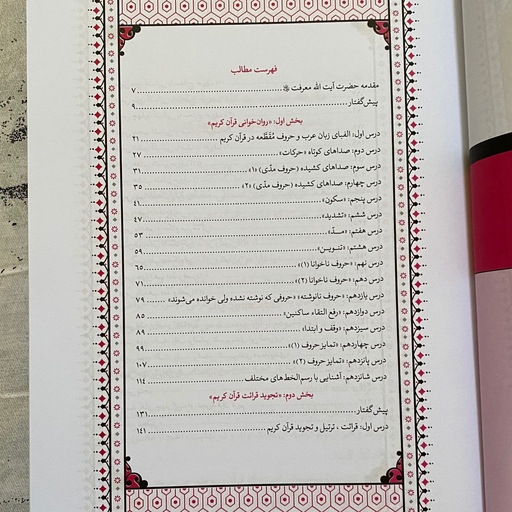 فهرست مطالب
مقدمه حضرت آیت الله معرفت ۷
پیش‌گفتار ۹
بخش اول: «روان‌خوانی قرآن کریم»
درس اول: الفبای زبان عرب و حروف مُقَطَّعه در قرآن کریم ۲۱
درس دوم: صداهای کوتاه «حرکات» ۲۷
درس سوم: صداهای کشیده (حروف مدّی) «۱» ۳۱
درس چهارم: صداهای کشیده (حروف مدّی) «۲» ۳۵
درس پنجم: «سکون» ۴۱
درس ششم: «تشدید» ۴۷
درس هفتم: «مـــدّ» ۵۳
درس هشتم: «تنویـن» ۵۹
درس نهم: «حروف ناخوانا (۱)» ۶۵
درس دهم: «حروف ناخوانا (۲)» ۷۱
درس یازدهم: «حروف نانوشته» «حروفی که نوشته نشده ولی خوانده می‌شوند» ۷۹
درس دوازدهم: «رفع التقاء ساکنین» ۸۵
درس سیزدهم: «وقف و ابتدا» ۸۹
درس چهاردهم: «تمایز حروف (۱)» ۹۹
درس پانزدهم: «تمایز حروف (۲)» ۱۰۷
درس شانزدهم: آشنایی با رسم‌الخط‌های مختلف ۱۱۴
بخش دوم: «تجوید قرائت قرآن کریم»
پیش‌گفتار ۱۳۱
درس اول: قرائت ، ترتیل و تجوید قرآن کریم ۱۴۱